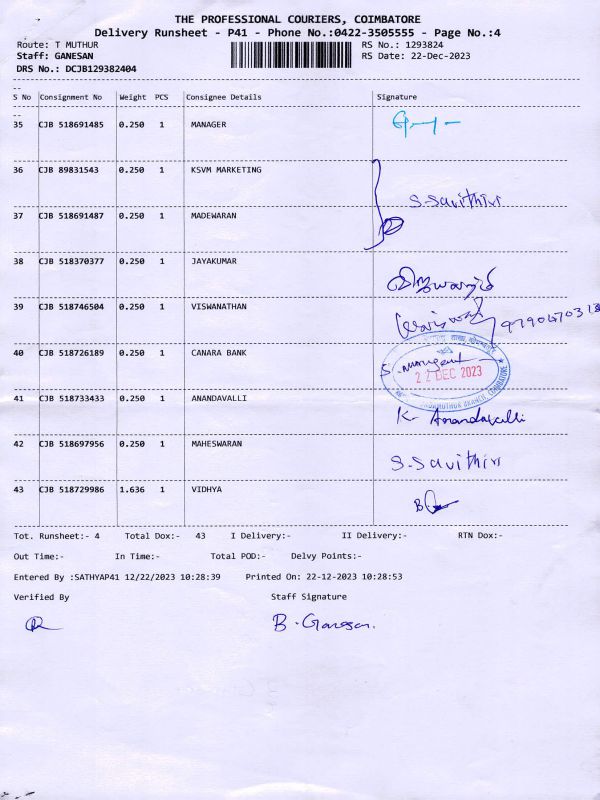 THE PROFESSIONAL COURIERS, COIMBATORE
Delivery Runsheet - P41 - Phone No.:0422-3505555 - Page No.:4
Route: T MUTHUR RS No.: 1293824
Staff: GANESAN RS Date: 22-Dec-2023
DRS No.: DCJB129382404
S No Consignment No Weight PCS Consignee Details Signature
35 CJB 518691485 0.250 1 MANAGER
36 CJB 89831543 0.250 1 KSVM MARKETING
S. Savithiri
37 CJB 518691487 0.250 1 MADEWARAN
38 CJB 518370377 0.250 1 JAYAKUMAR
39 CJB 518746504 0.250 1 VISWANATHAN
40 CJB 518726189 0.250 1 CANARA BANK
22 DEC 2023
41 CJB 518733433 0.250 1 ANANDAVALLI K. Anandavalli
42 CJB 518697956 0.250 1 MAHESWARAN S. Savithiri
43 CJB 518729986 1.636 1 VIDHYA
Tot. Runsheet:- 4 Total Dox:- 43 I Delivery:- II Delivery:- RTN Dox:-
Out Time:- In Time:- Total POD:- Delvy Points:-
Entered By :SATHYAP41 12/22/2023 10:28:39 Printed On: 22-12-2023 10:28:53
Verified By Staff Signature
B. Ganesan.